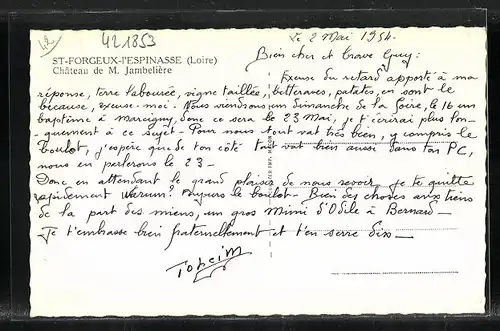 42
421853
Le 2 Mai 1954.
ST-FORGEUX-l'ESPINASSE (Loire)
Château de M. Jambelière
Bien cher et brave Guy:
Excuse du retard apporté à ma
réponse, terre labourée, vigne taillée, betteraves, patates, en sont le
because, excuse-moi. Nous viendrons un dimanche de la Foire, le 16 un
baptême à Marcigny, donc ce sera le 23 Mai, je t'écrirai plus lon-
guement à ce sujet - Pour nous tout va très bien, y compris le
boulot, j'espère que de ton côté tout va bien aussi dans ton PC,
nous en parlerons le 23 -
Donc en attendant le grand plaisir de nous revoir, je te quitte
rapidement Warum? toujours le boulot - Bien des choses aux tiens
de la part des miens, un gros mimi d'Odile à Bernard -
Je t'embrasse bien fraternellement et t'en serre dix -